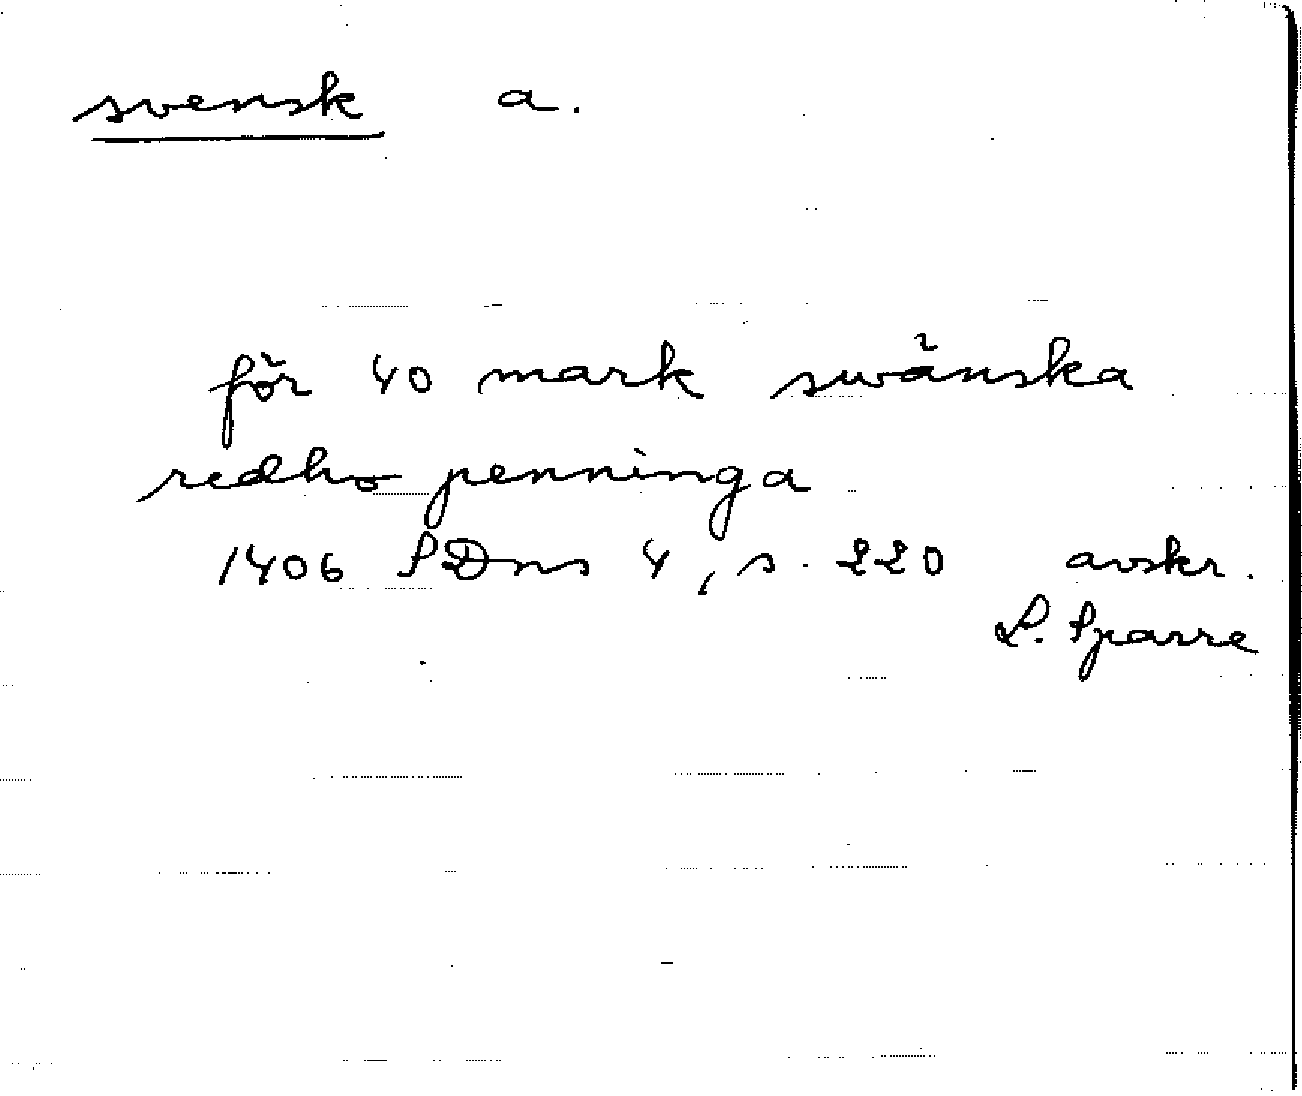 svensk a.
för 40 mark swänska
redho penninga
1406 SDns 4, s. 220 avskr.
L. Sparre